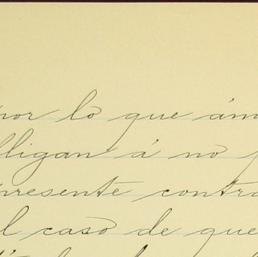 por lo que ám
lligan á no p
presente contra
l caso de que